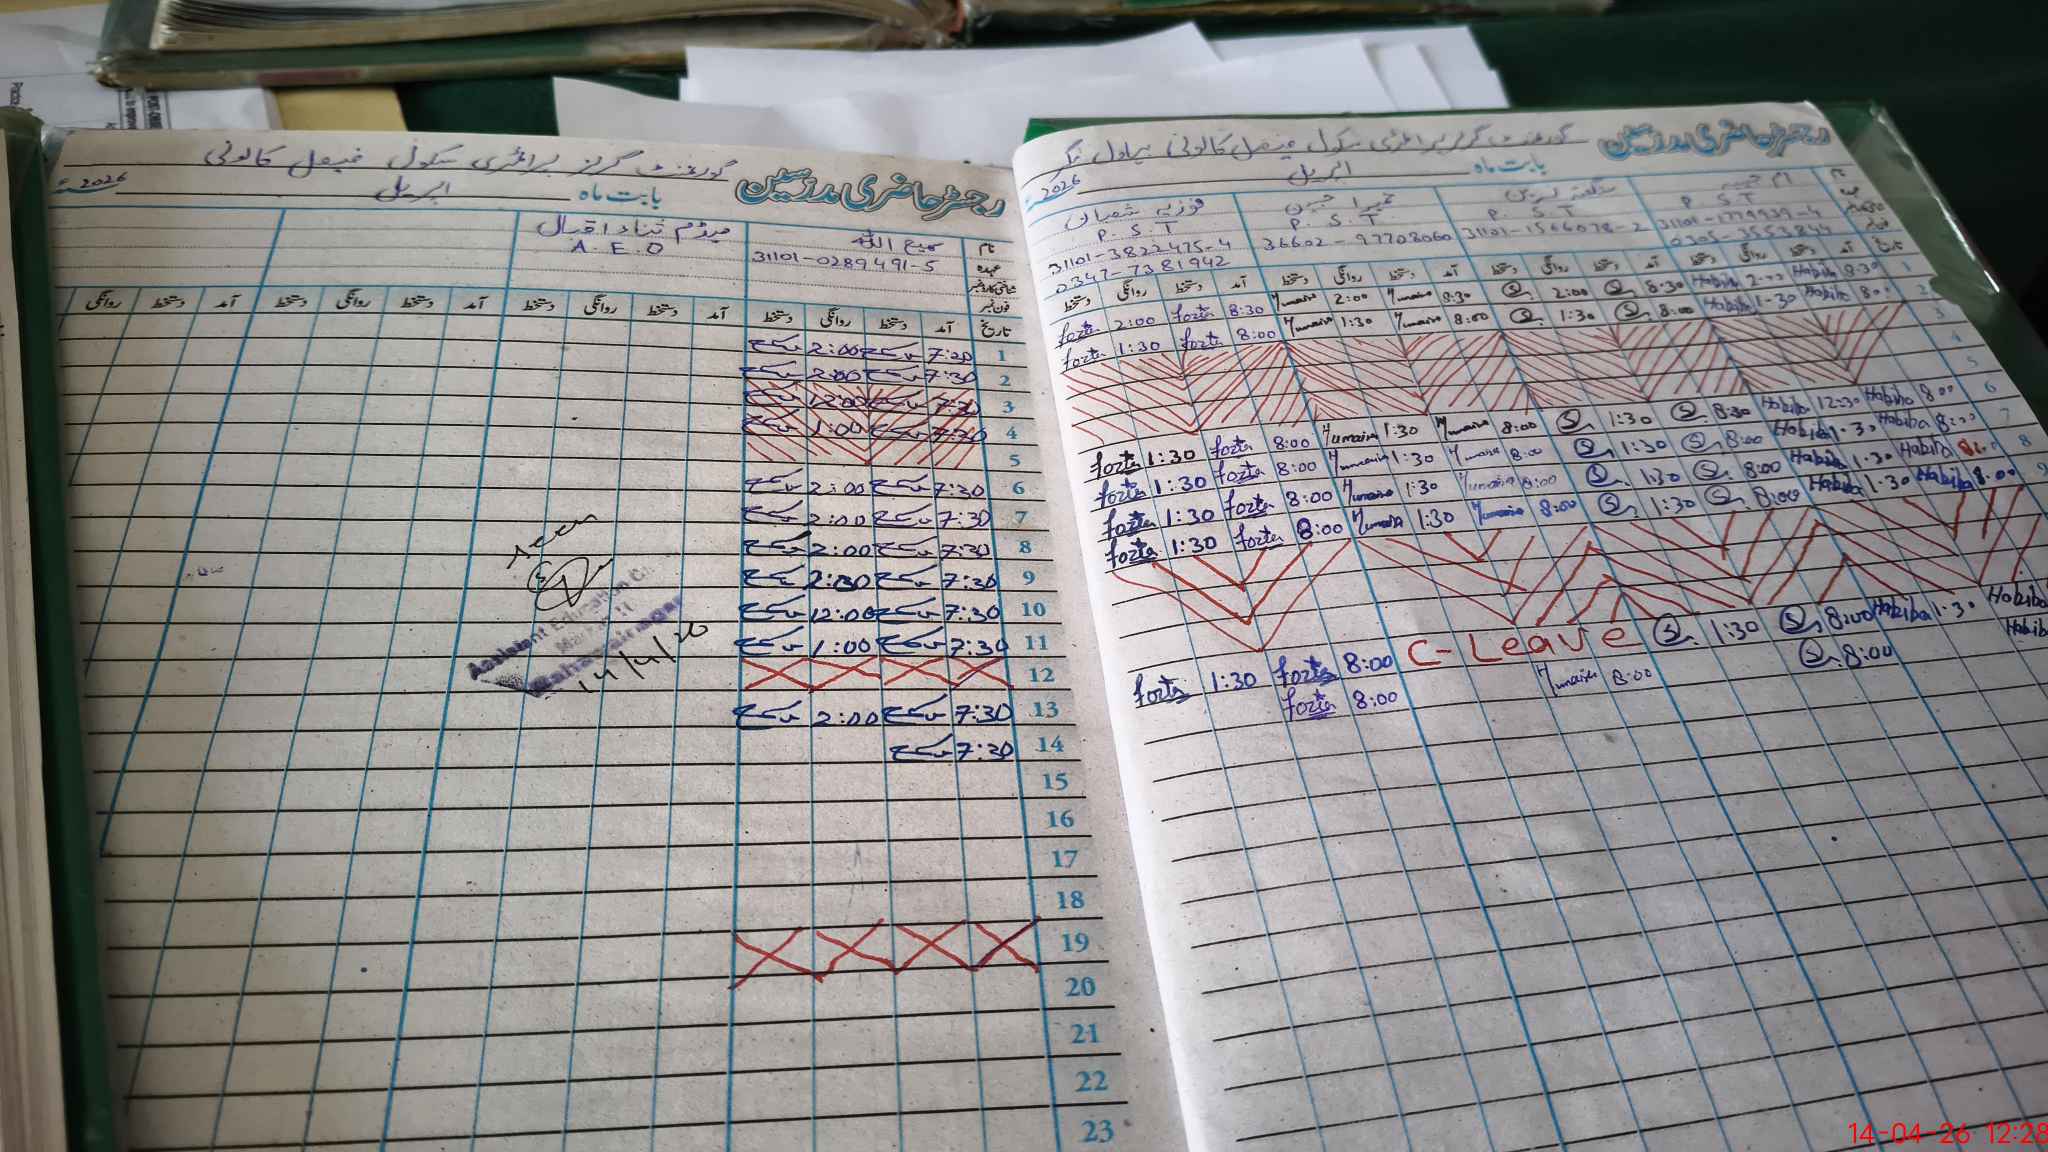 رجسٹر حاضری مدرسین گورنمنٹ گرلز پرائمری سکول فیصل کالونی بہاولنگر
بابت ماہ اپریل 2026
نام
P.S.T P.S.T P.S.T P.S.T
31101-1779939-4 31101-1566078-2 36602-97708060 31101-3822475-4
0305-3553844 0347-7381942
تاریخ آمد دستخط روانگی دستخط آمد دستخط روانگی دستخط آمد دستخط روانگی دستخط آمد دستخط روانگی دستخط
1 8:30 Habiba 2:00 Habiba 8:30 2:00 8:30 Humaira 2:00 Humaira 8:30 fozia 2:00 fozia
2 8:00 Habiba 1:30 Habiba 8:00 1:30 8:00 Humaira 1:30 Humaira 8:00 fozia 1:30 fozia
3
4
5
6 8:00 Habiba 12:30 Habiba 8:30 1:30 8:00 Humaira 1:30 Humaira 8:00 fozia 1:30 fozia
7 8:00 Habiba 1:30 Habiba 8:00 1:30 8:00 Humaira 1:30 Humaira 8:00 fozia 1:30 fozia
8 8:00 Habiba 1:30 Habiba 8:00 1:30 8:00 Humaira 1:30 Humaira 8:00 fozia 1:30 fozia
9 8:00 Habiba 1:30 Habiba 8:00 1:30 8:00 Humaira 1:30 Humaira 8:00 fozia 1:30 fozia
Habiba 1:30 Habiba 8:00 1:30 C-Leave 8:00 fozia 1:30 fozia
Habib 8:00 8:00 Humaira 8:00 fozia
رجسٹر حاضری مدرسین گورنمنٹ گرلز پرائمری سکول فیصل کالونی
بابت ماہ اپریل 2026
نام سمیع اللہ میڈم ثناء اقبال
عہدہ A.E.O
شناختی کارڈ نمبر 31101-0289491-5
فون نمبر
تاریخ آمد دستخط روانگی دستخط آمد دستخط روانگی دستخط آمد دستخط روانگی دستخط آمد دستخط روانگی
1 7:30 2:00
2 7:30 2:00
3 7:30 12:00
4 7:30 1:00
5
6 7:30 2:00
7 7:30 2:00
8 7:30 2:00
9 7:30 2:00
10 7:30 12:00
11 7:30 1:00
12
13 7:30 2:00
14 7:30
15
16
17
18
19
20
21
22
23
Assistant Education
Bahawalnagar
14/4/26
14-04-26 12:28